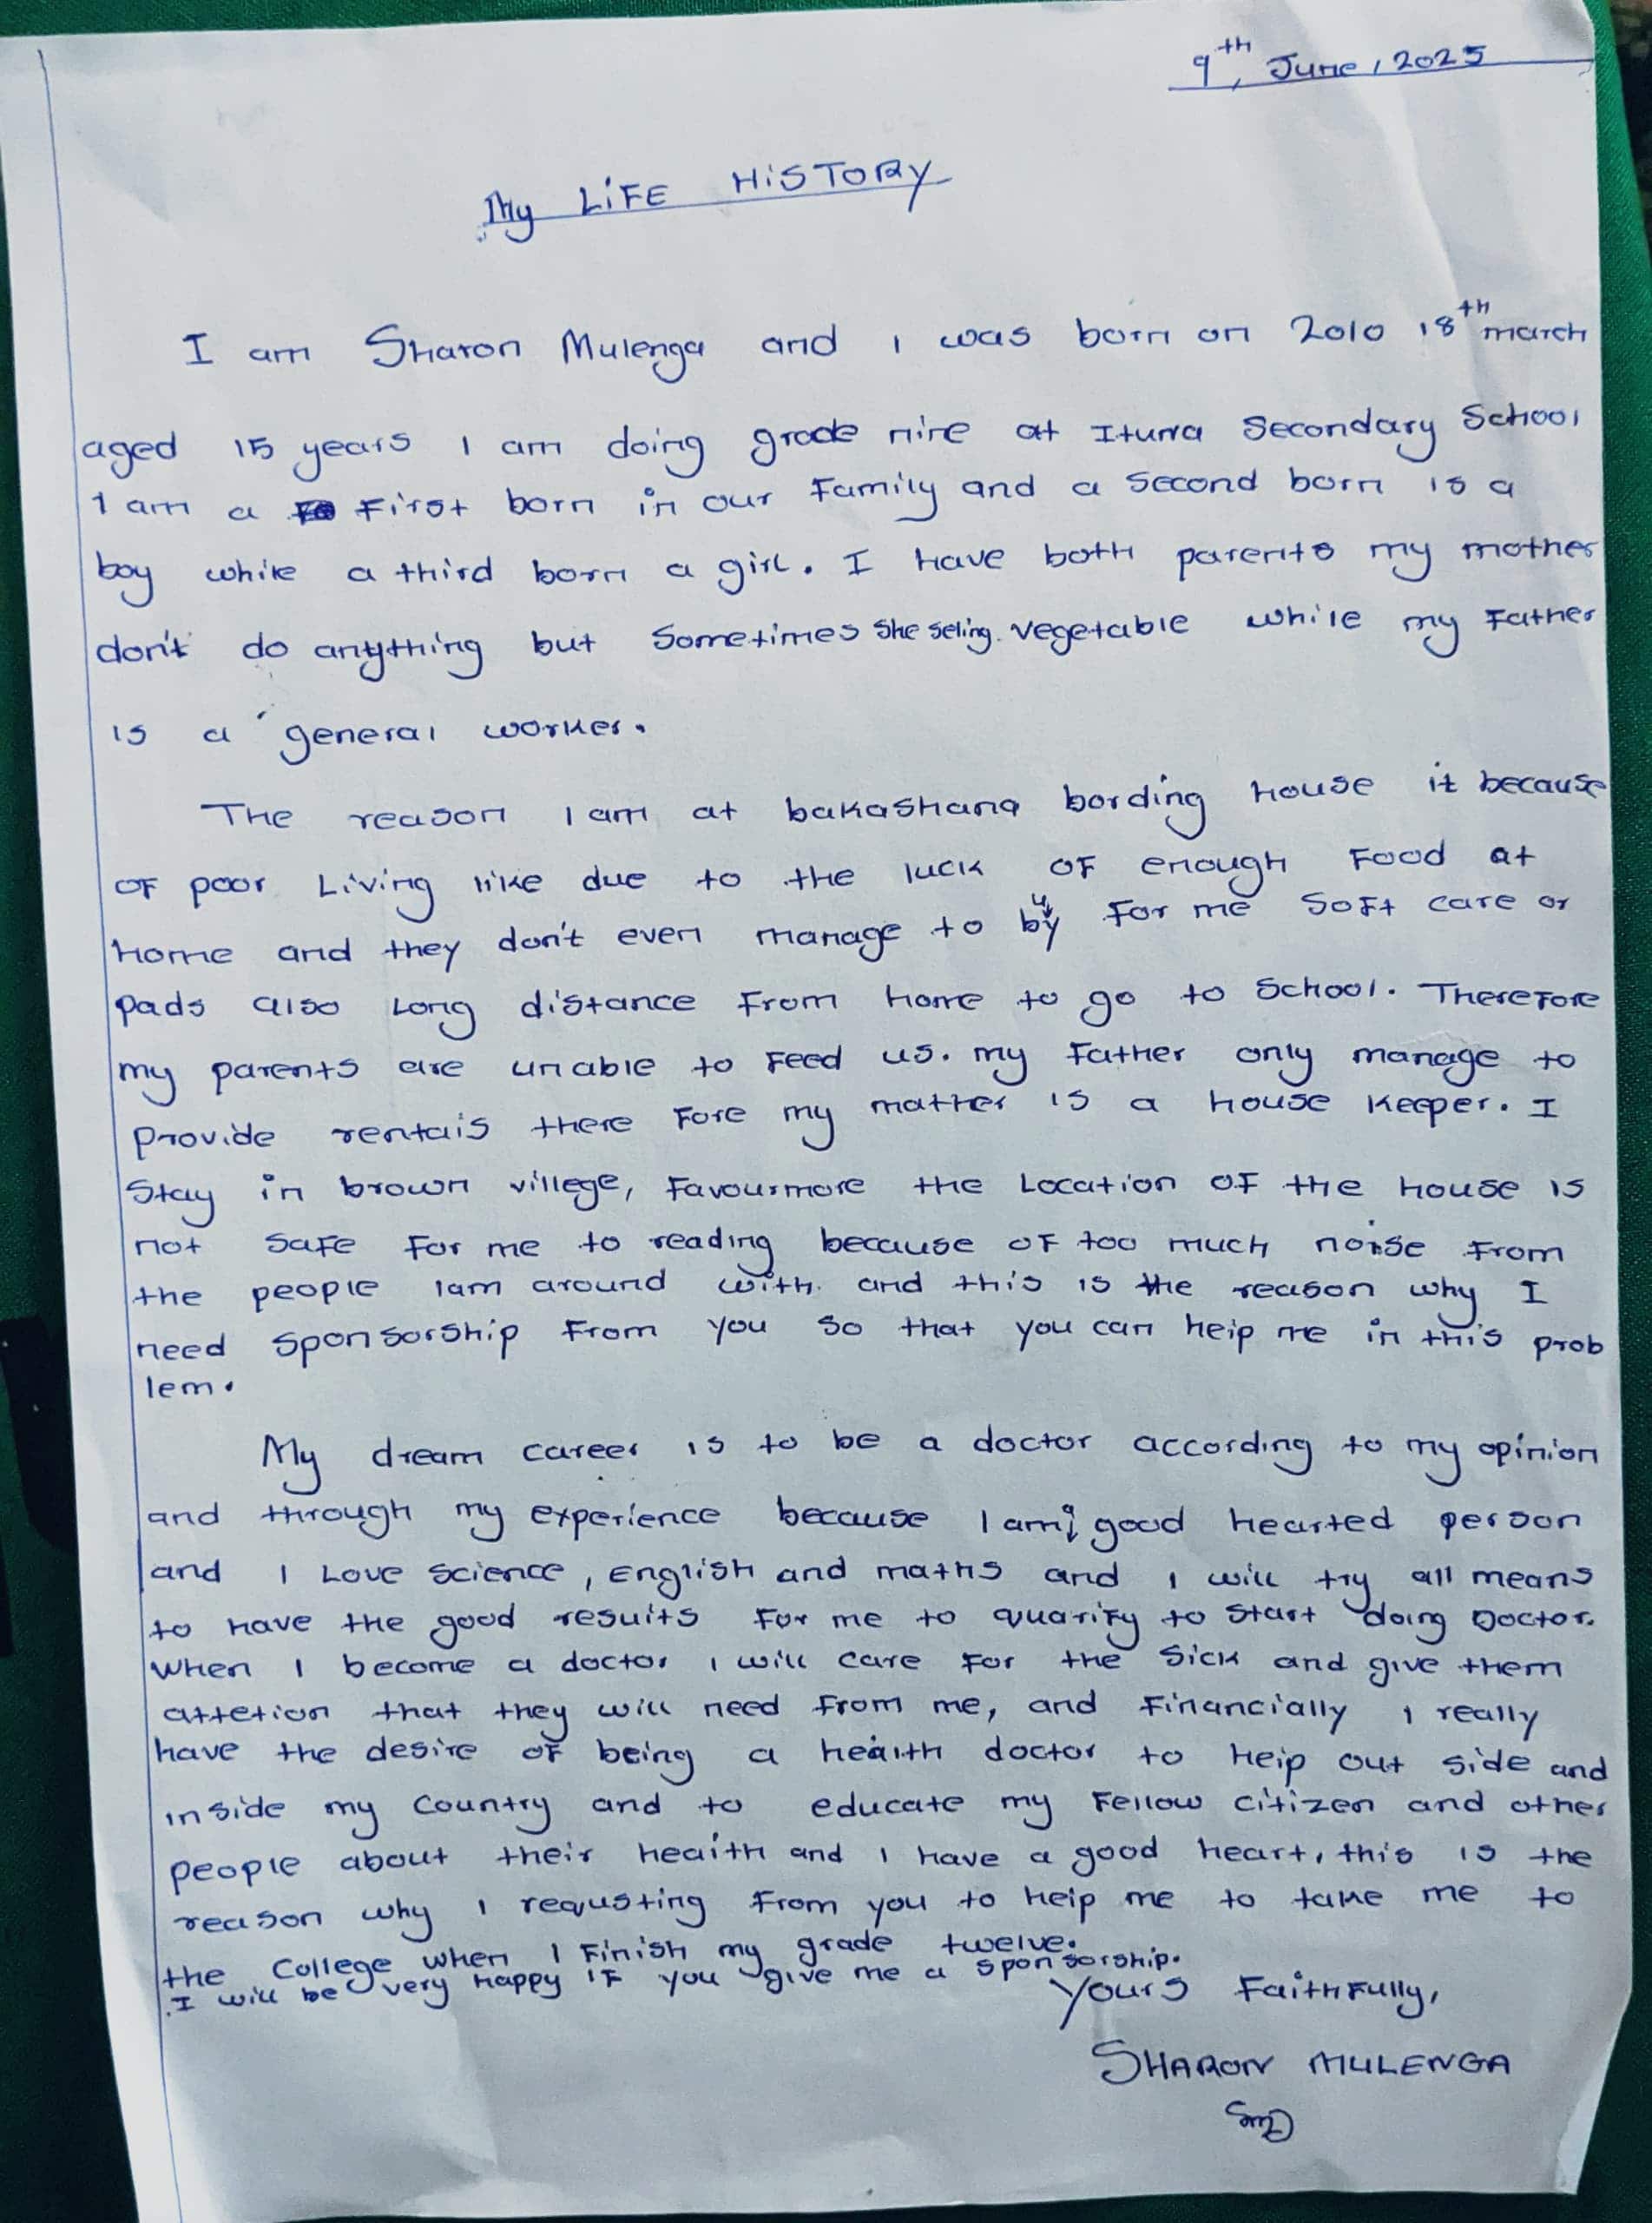 9th, June, 2025
My LiFE HiSTORY
I am Sharon Mulenga and I was born on 2010 18th march
aged 15 years I am doing grade nine at Ituna Secondary School
I am a First born in our Family and a second born is a
boy while a third born a girl. I have both parents my mother
don't do anything but Sometimes She seling vegetable while my Father
is a general worker.
The reason I am at bakashana bording house it because
OF poor Living like due to the luck OF enough Food at
home and they don't even manage to buy For me Soft care or
pads also Long distance From home to go to School. Therefore
my parents are unable to Feed us. my Father only manage to
provide rentals there Fore my mather is a house Keeper. I
Stay in brown villege, Favourmore the Location OF the house is
not safe For me to reading because OF too much noise From
the people Iam around with. and this is the reason why I
need sponsorship From you so that you can help me in this prob
lem.
My dream career is to be a doctor according to my opinion
and through my experience because I am good hearted person
and I Love science, English and maths and I will try all means
to have the good results For me to quarify to Start doing Doctor.
When I become a doctor I will care For the Sick and give them
attetion that they will need From me, and Financially I really
have the desire oF being a health doctor to Help out side and
inside my Country and to educate my Fellow citizen and other
people about their health and I have a good heart, this is the
reason why I requsting From you to help me to take me to
the College when I Finish my grade twelve.
I will be very happy IF you give me a sponsorship.
Yours FaithFully,
SHARON MULENGA